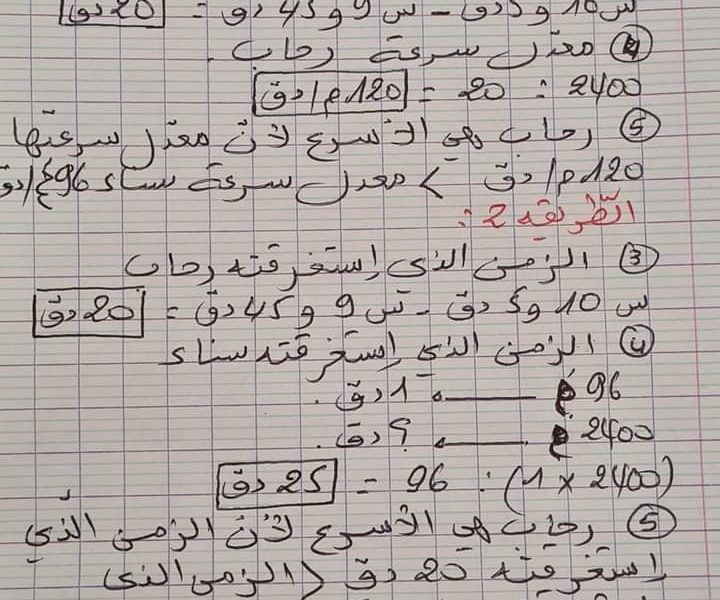 س 10 و 5 دق - س 9 و 45 دق = 20 دق
④ معدّل سرعة رحاب.
2400 : 20 = 120 م/دق
⑤ رحاب هي الأسرع لأنّ معدّل سرعتها
120 م/دق > معدل سرعة سناء 96 م/دق
الطّريقة 2 :
③ الزمن الذي إستغرقته رحاب
س 10 و 5 دق - س 9 و 45 دق = 20 دق
④ الزمن الذي إستغرقته سناء
96 م ــــــ 1 دق.
2400 م ــــــ ؟ دق.
(2400 × 1) : 96 = 25 دق
⑤ رحاب هي الأسرع لأنّ الزمن الذّي
إستغرقته 20 دق < الزمن الذي